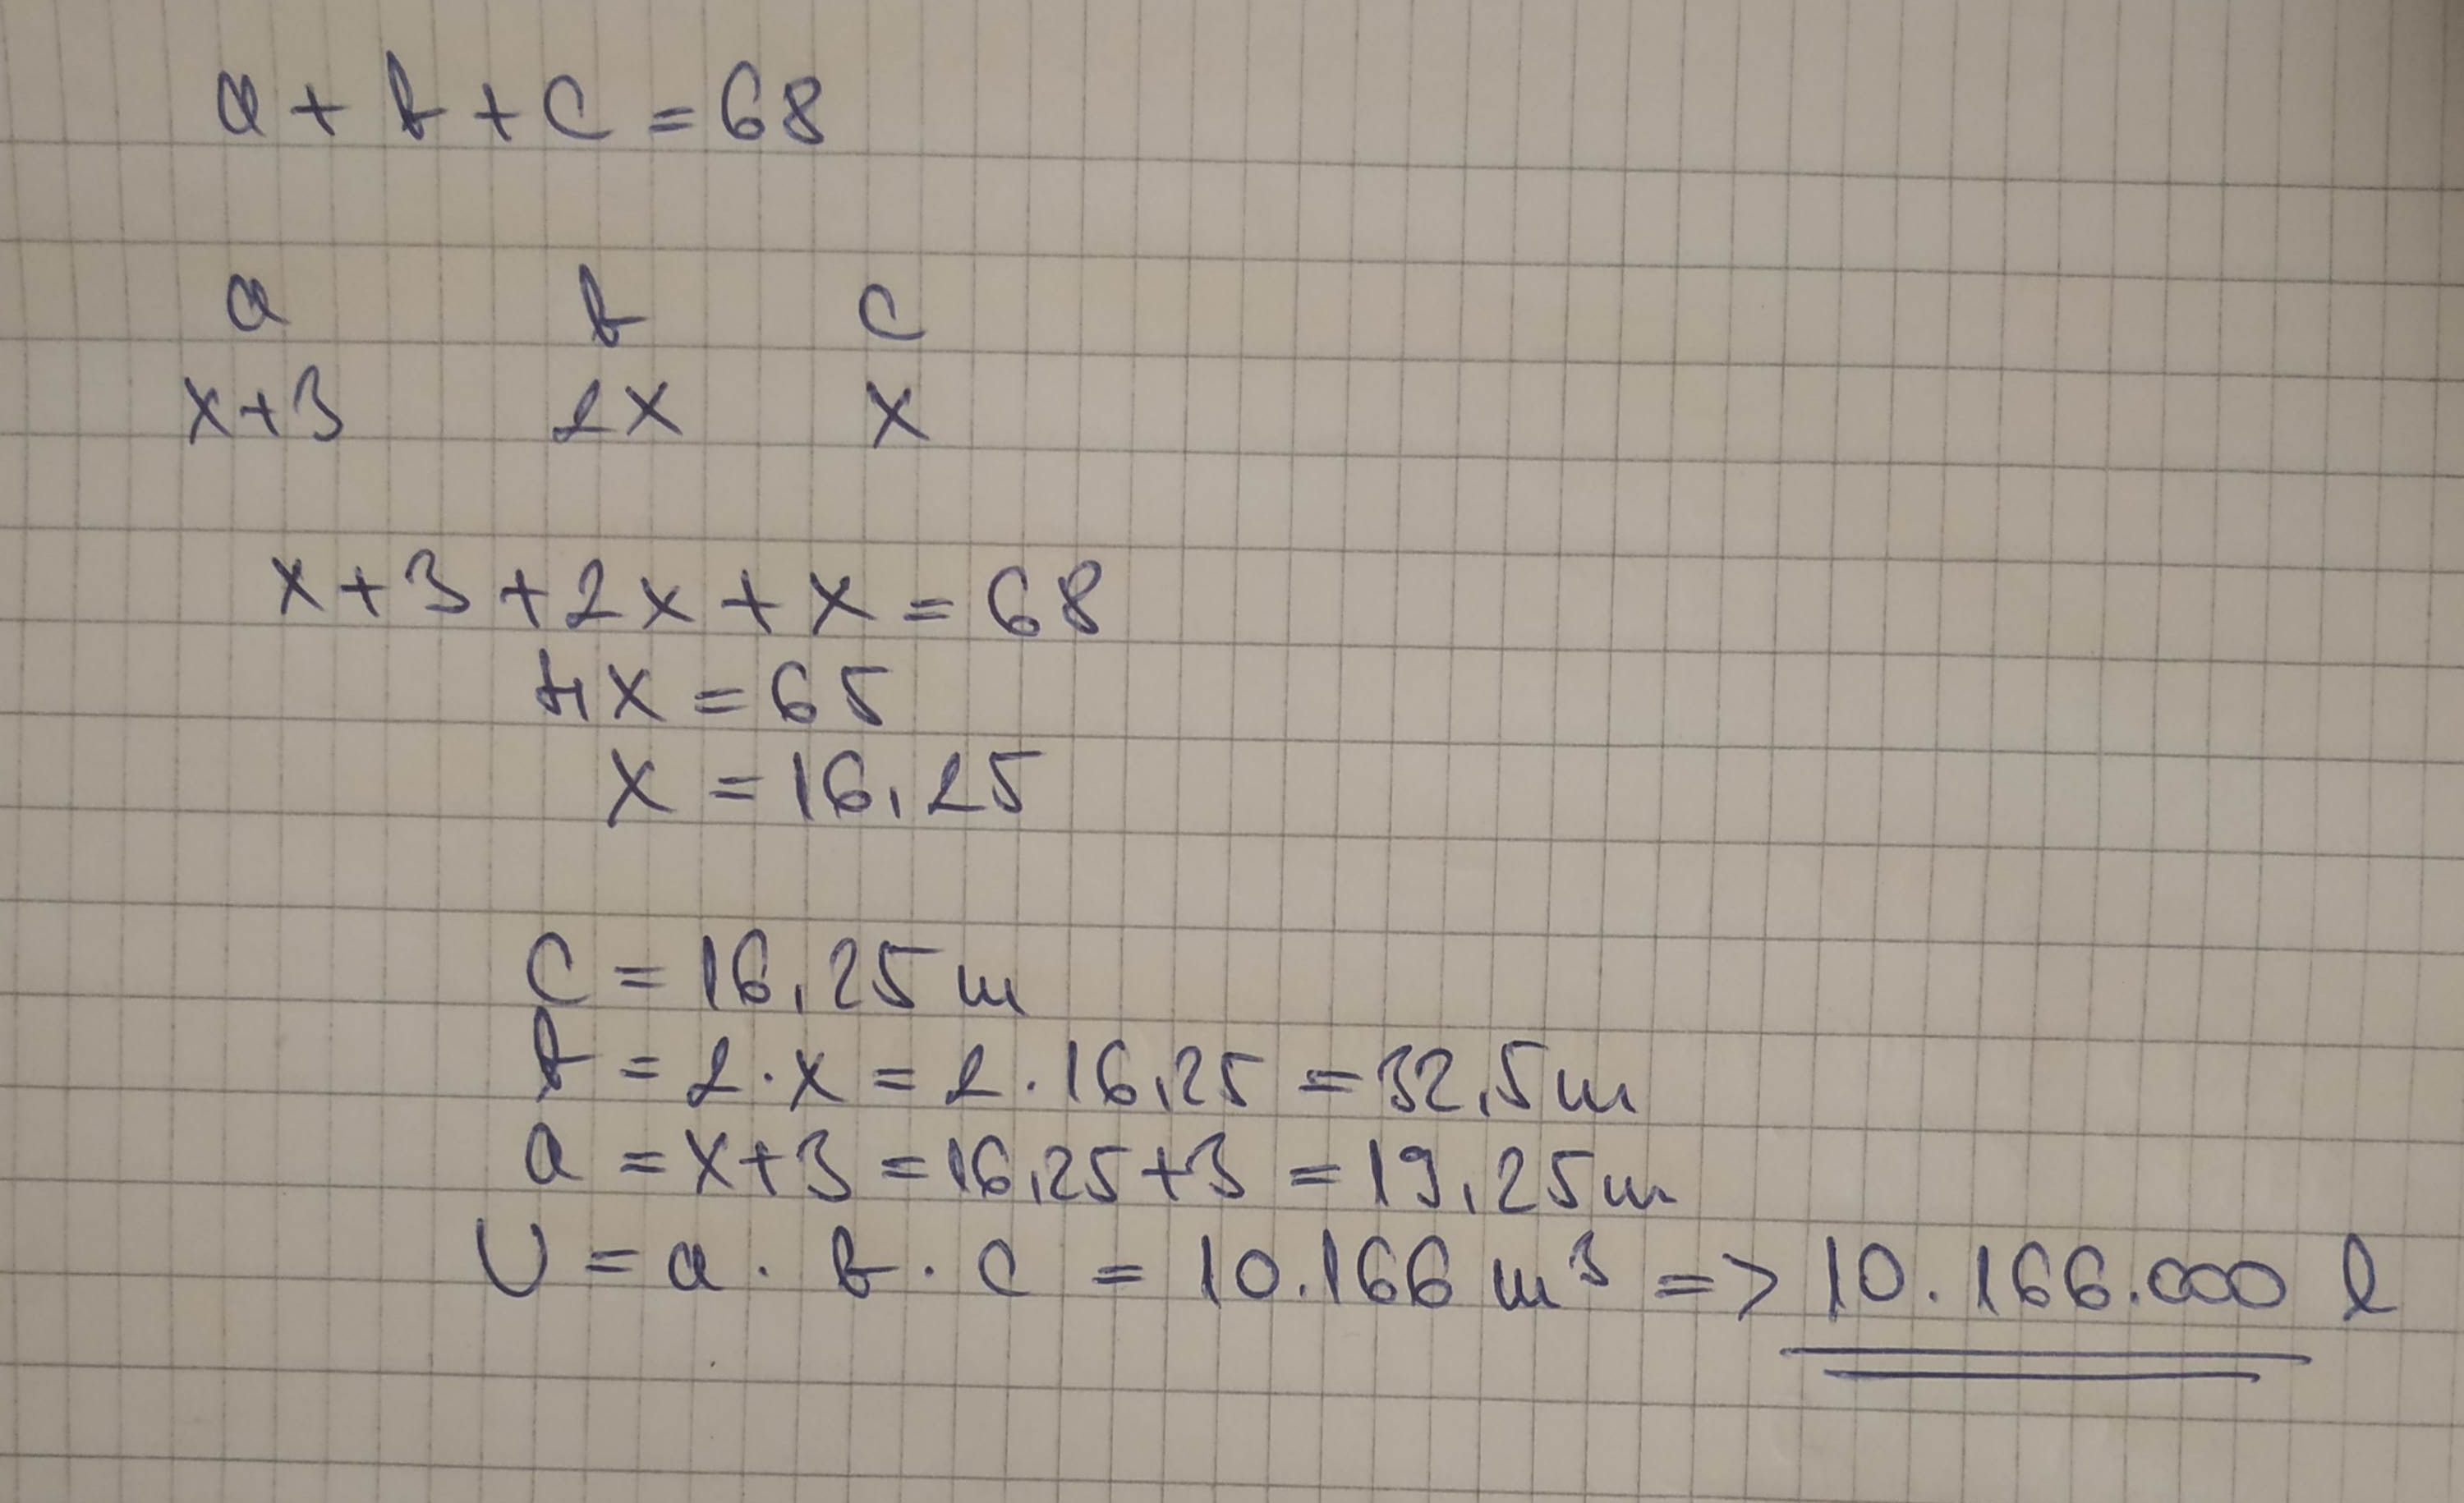 a + b + c = 68
a b c
x+3 2x x
x+3+2x+x=68
4x=65
x=16,25
c=16,25m
b=2·x=2·16,25=32,5m
a=x+3=16,25+3=19,25m
V=a·b·c=10.166m³=>10.166.000 l